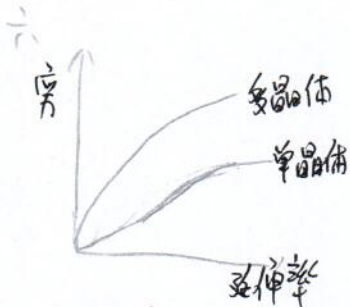 六
应力
多晶体
单晶体
延伸率